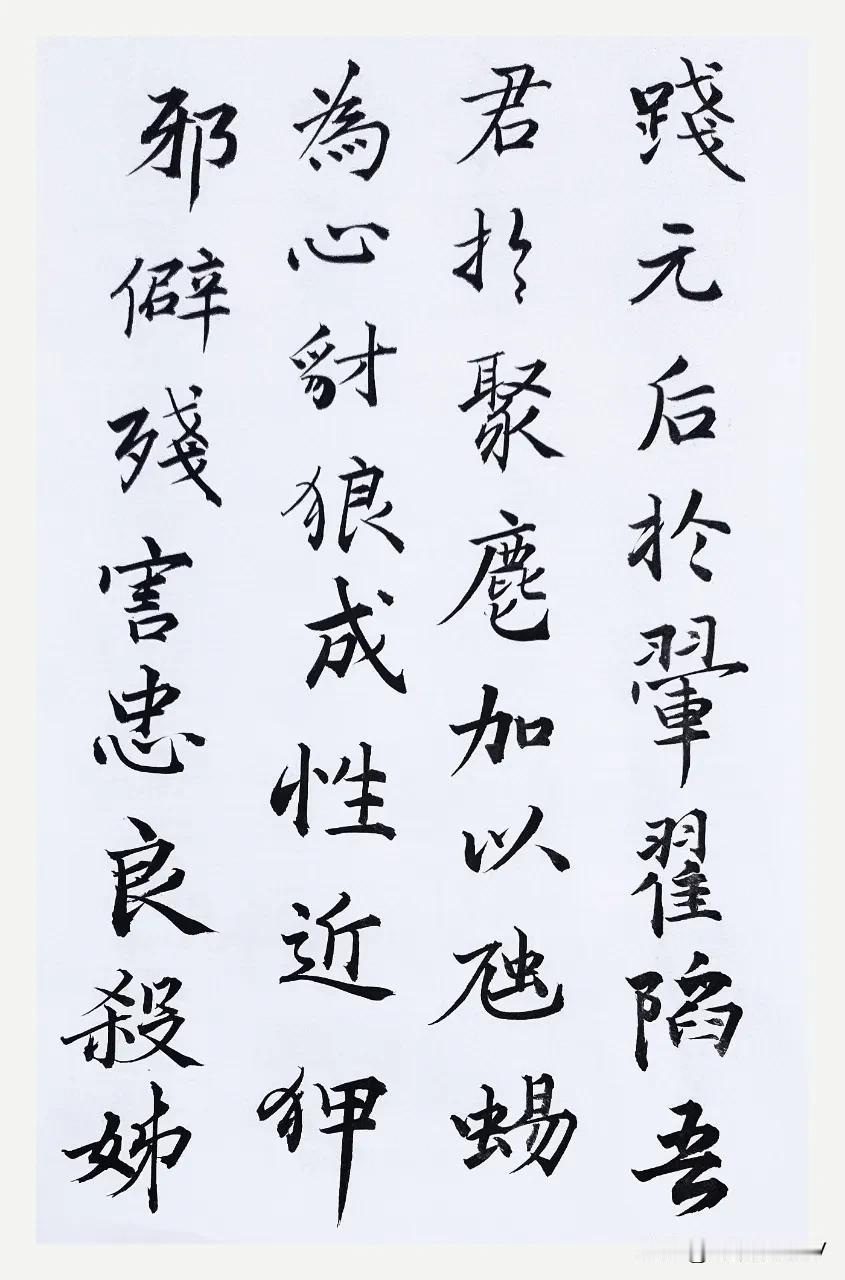 踐元后於翬翟陷吾
君於聚麀加以虺蜴
為心豺狼成性近狎
邪僻殘害忠良殺姊